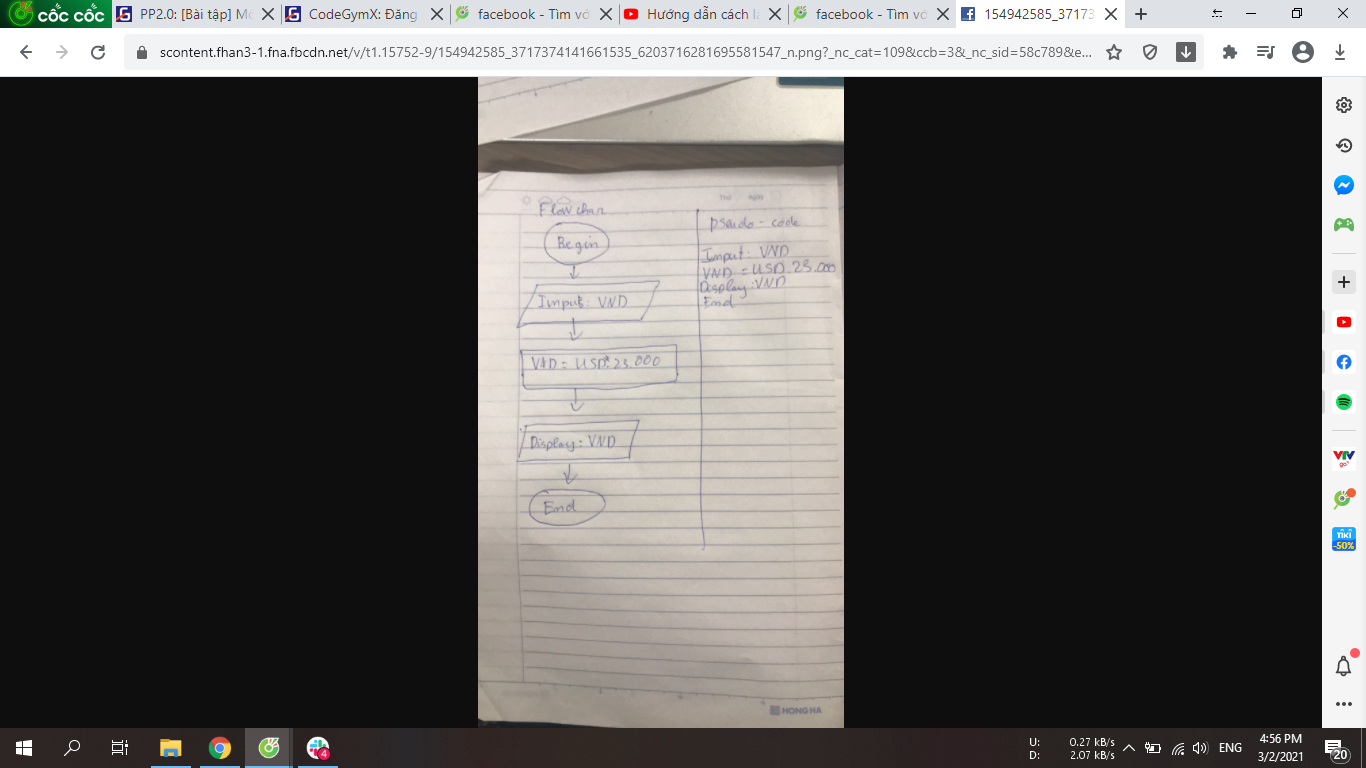 cốc cốc
PP2.0: [Bài tập] Mô
CodeGymX: Đăng
facebook - Tìm vớ
Hướng dẫn cách là
facebook - Tìm vớ
154942585_37173
scontent.fhan3-1.fna.fbcdn.net/v/t1.15752-9/154942585_3717374141661535_6203716281695581547_n.png?_nc_cat=109&ccb=3&_nc_sid=58c789&e...
Flow char
Begin
Imput: VND
VND = USD*23.000
Display: VND
End
Thứ Ngày
Psaudo - code
Imput: VND
VND = USD.23.000
Display: VND
End
HONG HA
VTV
go
TIKI
-50%
4
U: 0.27 kB/s
D: 2.07 kB/s
ENG
4:56 PM
3/2/2021
20